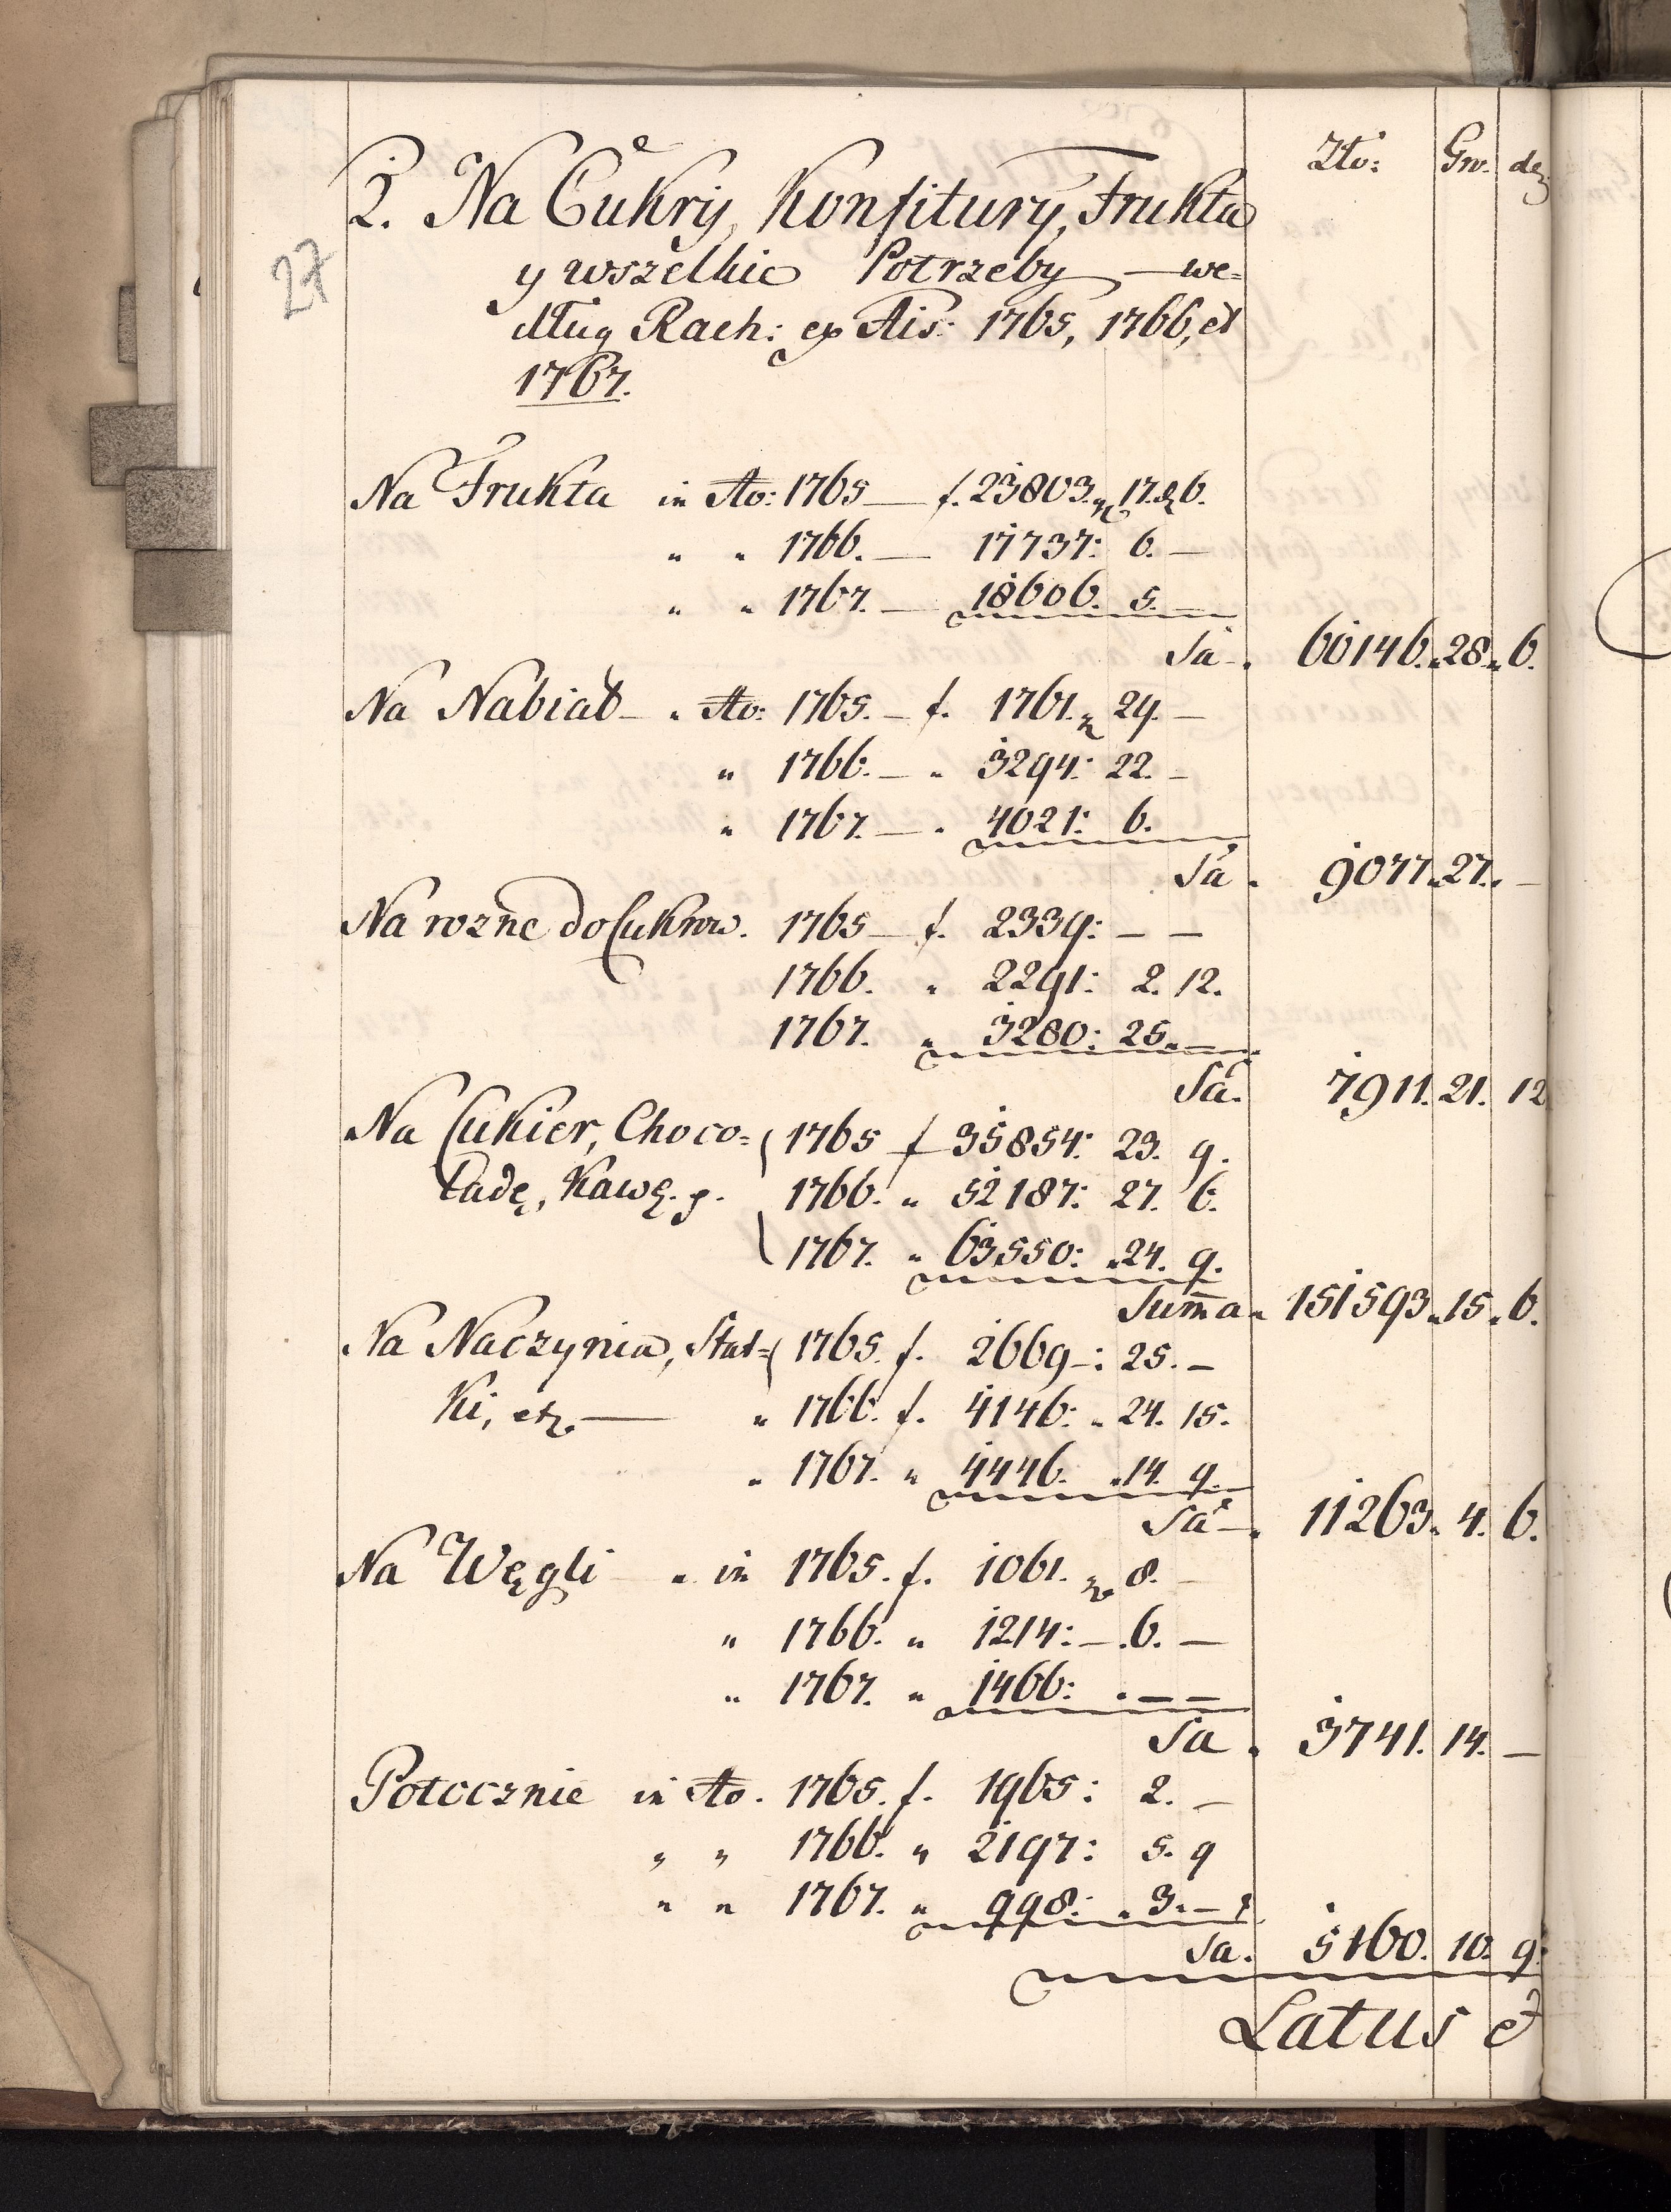 Zło: Gr. de
2. Na Cukry, Konfitury, Frukta
y wszelkie Potrzeby — we=
27
dług Rach: ex Ais: 1765, 1766, et
1767.
Na Frukta in Ao: 1765 — f. 23803. 17. 6.
" " 1766. — 17737: 6. —
" " 1767. — 18606. 5. —
Sa. 60146. 28. 6.
Na Nabiał — " Ao: 1765. — f. 1761. 29. —
" 1766. — " 3294: 22. —
" 1767. — " 4021: 6.
Sa. 9077. 27. —
Na rozne do Cukrow. 1765 — f. 2339: — —
1766. " 2291: 2. 12.
1767. " 3280: 25. —
Sa. 7911. 21. 12
Na Cukier, Choco= 1765 f 35854: 23. 9.
ladę, Kawę. p. 1766. " 52187: 27. 6.
1767. " 63550: 24. 9.
Summa 151593. 15. 6.
Na Naczynia, Stat= 1765. f. 2669 —: 25. —
Ki, etz. — " 1766. f. 4146: " 24. 15.
" 1767. " 4446. 14. 9.
Sa — 11263. 4. 6.
Na Węgli " in 1765. f. 1061. 8. —
" 1766. " 1214: — 6. —
" 1767. " 1466: — —
Sa. 3741. 14. —
Potocznie in Ao. 1765. f. 1965: 2. —
" " 1766. " 2197: 5. 9
" " 1767. " 998: 3. —
Sa. 5160. 10. 9.
Latus